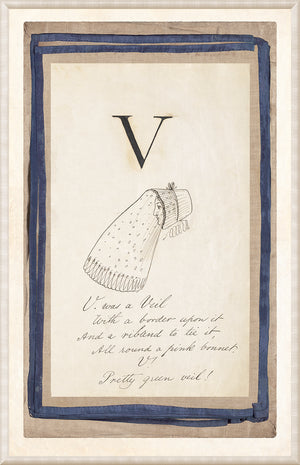 V
V. was a Veil
With a border upon it
And a riband to tie it,
All round a pink bonnet.
V!
Pretty green veil!